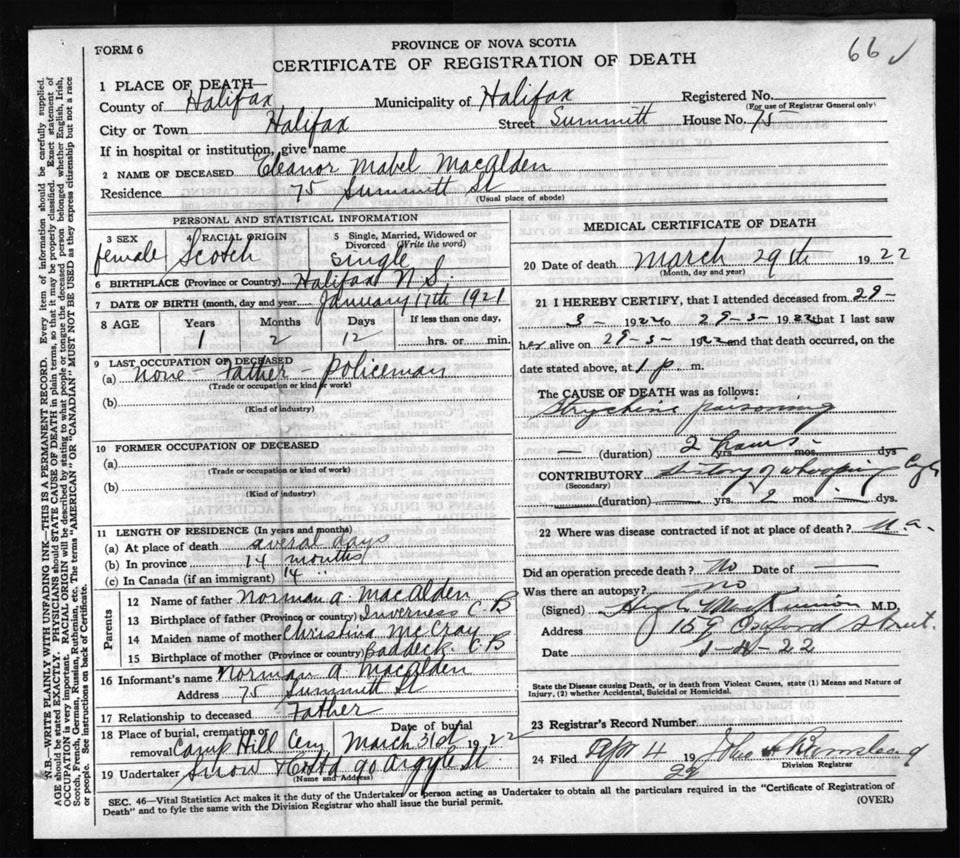 FORM 6
PROVINCE OF NOVA SCOTIA
CERTIFICATE OF REGISTRATION OF DEATH
66 ✓
N.B.—WRITE PLAINLY WITH UNFADING INK—THIS IS A PERMANENT RECORD. Every item of information should be carefully supplied.
AGE should be stated EXACTLY. PHYSICIANS should STATE CAUSE OF DEATH in plain terms, so that it may be properly classified. Exact statement of
OCCUPATION is very important. RACIAL ORIGIN will be described by stating to what people or tongue the deceased person belonged whether English, Irish,
Scotch, French, German, Russian, Ruthenian, etc. The terms "AMERICAN" or "CANADIAN" MUST NOT BE USED as they express citizenship but not a race
or people. See instructions on back of Certificate.
1 PLACE OF DEATH—
County of Halifax Municipality of Halifax Registered No.
(For use of Registrar General only)
City or Town Halifax Street Summitt House No. 75
If in hospital or institution, give name
2 NAME OF DECEASED Eleanor Mabel MacAlden
Residence 75 Summitt St
(Usual place of abode)
PERSONAL AND STATISTICAL INFORMATION
3 SEX female
4 RACIAL ORIGIN Scotch
5 Single, Married, Widowed or Divorced (Write the word) single
6 BIRTHPLACE (Province or Country) Halifax N.S.
7 DATE OF BIRTH (month, day and year) January 17th 1921
8 AGE Years Months Days If less than one day,
1 2 12 hrs. or min.
9 LAST OCCUPATION OF DECEASED
(a) None - Father - Policeman
(Trade or occupation or kind or work)
(b)
(Kind of industry)
10 FORMER OCCUPATION OF DECEASED
(a)
(Trade or occupation or kind of work)
(b)
(Kind of industry)
11 LENGTH OF RESIDENCE (In years and months)
(a) At place of death several days
(b) In province 14 months
(c) In Canada (if an immigrant) 14 "
Parents
12 Name of father Norman A MacAlden
13 Birthplace of father (Province or country) Inverness C B
14 Maiden name of mother Christina McCray
15 Birthplace of mother (Province or country) Baddeck C B
16 Informant's name Norman A. MacAlden
Address 75 Summitt St
17 Relationship to deceased Father
18 Place of burial, cremation or removal Camp Hill Cem
Date of burial March 31st 1922
19 Undertaker Snow 90 Argyle St.
(Name and Address)
MEDICAL CERTIFICATE OF DEATH
20 Date of death March 29th 1922
(Month, day and year)
21 I HEREBY CERTIFY, that I attended deceased from 29-
3- 1922 to 29-3- 1922 that I last saw
her alive on 29-3- 1922 and that death occurred, on the
date stated above, at 1 p. m.
The CAUSE OF DEATH was as follows:
Strychnine poisoning
— (duration) 2 hours — yrs. mos. dys
CONTRIBUTORY history of whooping cough
(Secondary)
(duration) — yrs. 2 mos. — dys.
22 Where was disease contracted if not at place of death? n.a.
Did an operation precede death? No Date of —
Was there an autopsy? No
(Signed) Hugh MacKinnon M.D.
Address 159 Oxford Street.
Date 1-4-22
State the Disease causing Death, or in death from Violent Causes, state (1) Means and Nature of
Injury, (2) whether Accidental, Suicidal or Homicidal.
23 Registrar's Record Number
24 Filed Apr 4 1922
Division Registrar
SEC. 46—Vital Statistics Act makes it the duty of the Undertaker or person acting as Undertaker to obtain all the particulars required in the "Certificate of Registration of
Death" and to fyle the same with the Division Registrar who shall issue the burial permit.
(OVER)